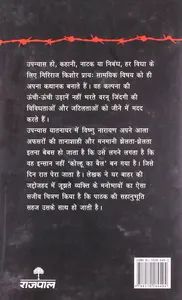 उपन्यास हो, कहानी, नाटक या निबंध, हर विधा के
लिए गिरिराज किशोर प्रायः सामयिक विषय को ही
अपना कथानक बनाते हैं। वह कल्पना की
ऊंची-ऊंची उड़ानें नहीं भरते वरन् जिंदगी की
विविधताओं और जटिलताओं को जीने में मदद
करते हैं।
उपन्यास यातनाघर में विष्णु नारायण अपने आला
अफसरों की तानाशाही और मनमानी झेलता-झेलता
इतना बेबस हो जाता है कि उसे लगने लगता है
कि वह इन्सान नहीं 'कोल्हू का बैल' बन गया है। जिसे
दिन रात पेरा जाता है। लेखक ने घर बाहर की
जद्दोजहद में जूझते व्यक्ति के मनोभावों का ऐसा
सजीव चित्रण किया है कि पाठक की सहानुभूति
सहज उसके साथ हो जाती है।
राजपाल